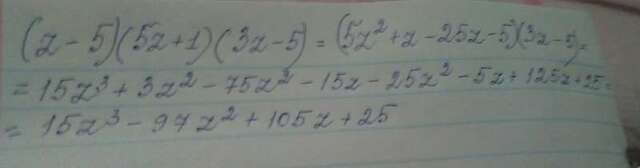 (z-5)(5z+1)(3z-5)=(5z²+z-25z-5)(3z-5)=
=15z³+3z²-75z²-15z-25z²-5z+125z+25=
=15z³-97z²+105z+25